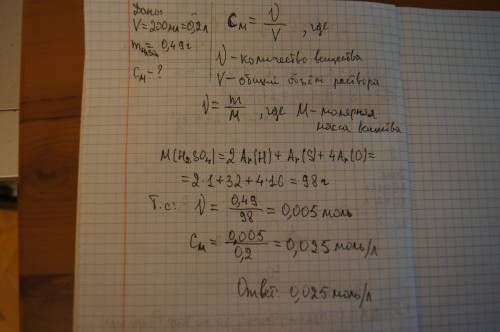 Дано:
V=200мл=0,2л
m H₂SO₄=0,49г
Cм-?
Cм = ν/V, где
ν-количество вещества
V-общий объём раствора
ν = m/M, где M-молярная
масса вещества
M(H₂SO₄)=2Ar(H)+Ar(S)+4Ar(O)=
=2·1+32+4·16=98г
Т.е: ν = 0,49/98 = 0,005 моль
Cм = 0,005/0,2 = 0,025 моль/л
Ответ: 0,025 моль/л